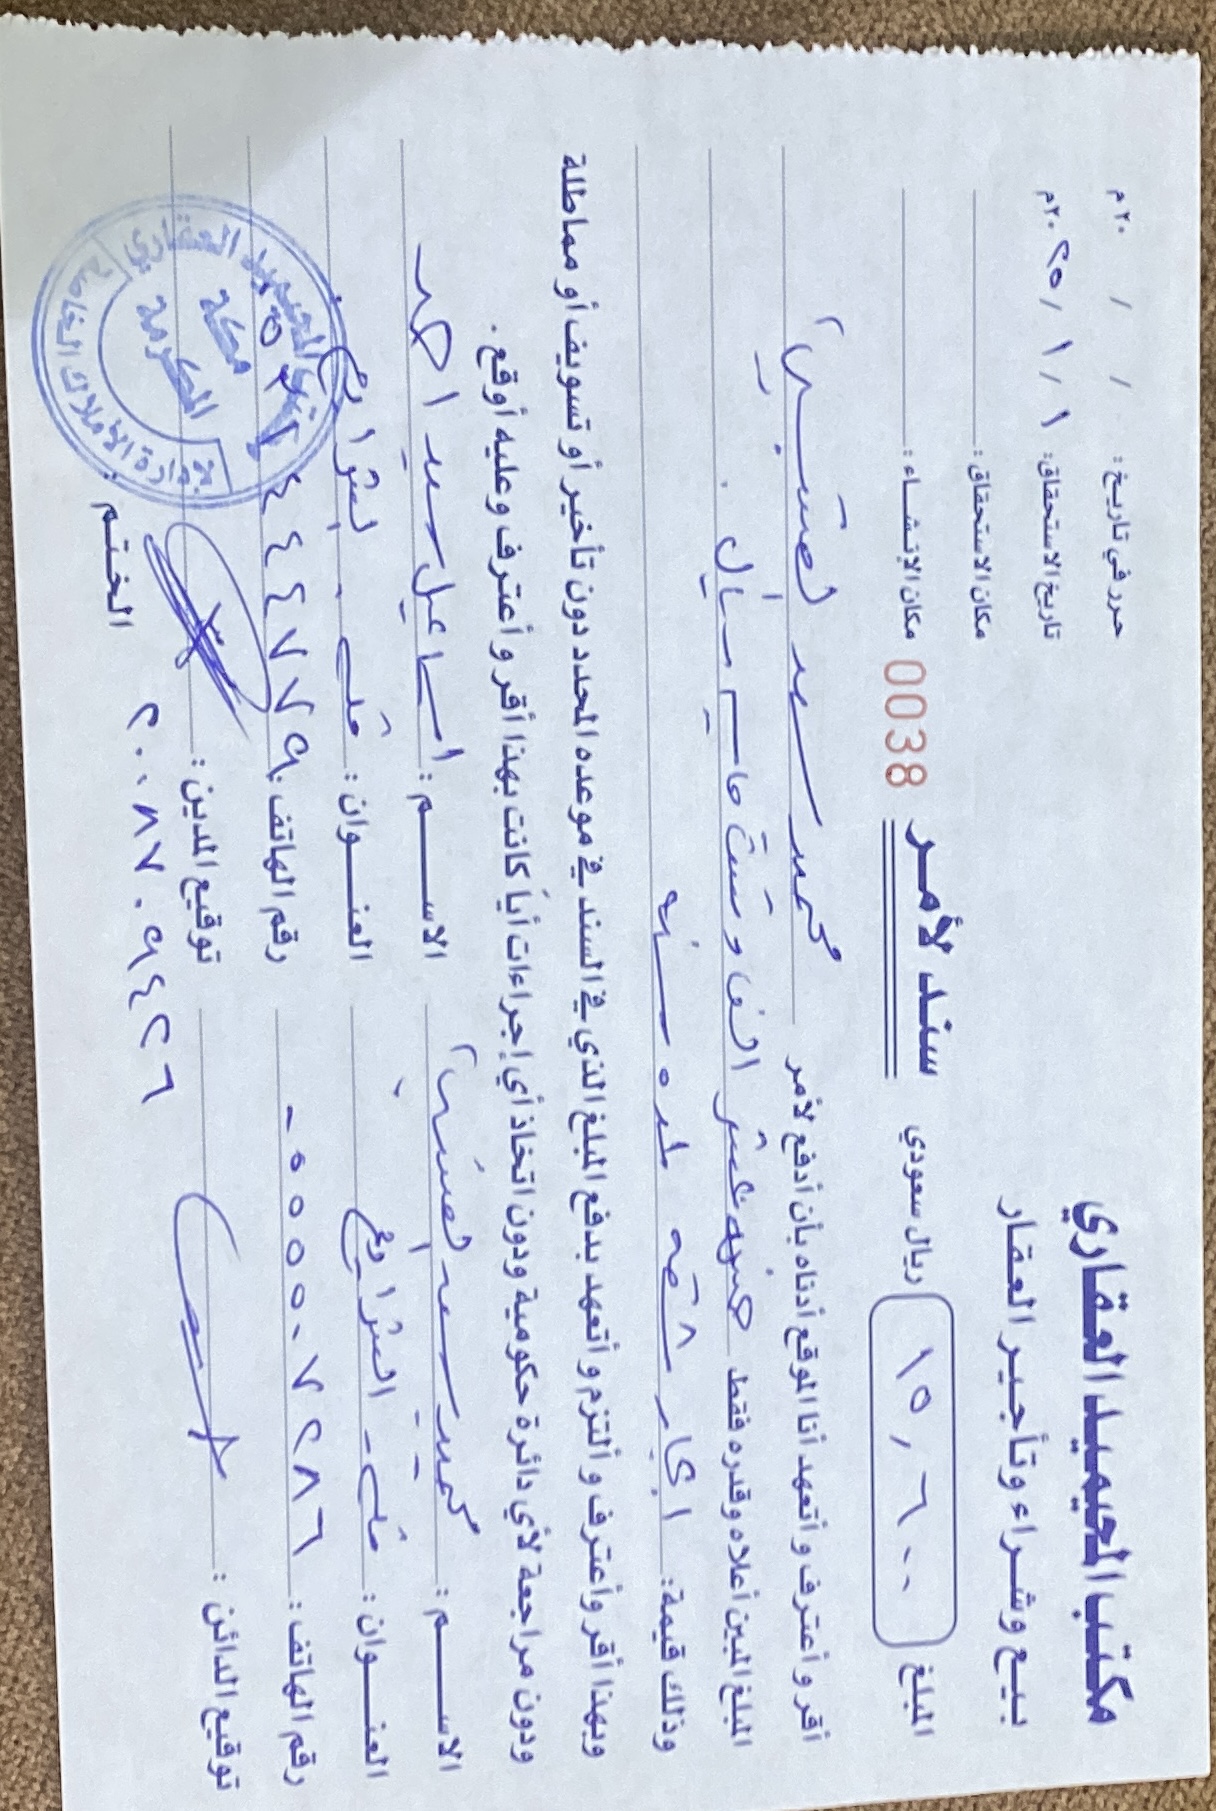 مكتب الحيميد العقاري
بيع وشراء وتأجير العقار
حرر في تاريخ : / / ٢٠م
تاريخ الاستحقاق: ١ / ١ / ٢٠٢٥م
مكان الاستحقاق :
مكان الإنشاء :
المبلغ ١٥,٦٠٠ ريال سعودي
سند لأمر 0038
أقر و أعترف و أتعهد أنا الموقع أدناه بأن أدفع لأمر محمد سعد
المبلغ المبين أعلاه وقدره فقط خمسة عشر الف و ست مايه ريال
وذلك قيمة: ايجار شقه لمده سنه
وبهذا أقر وأعترف و ألتزم و أتعهد بدفع المبلغ الذي في السند في موعده المحدد دون تأخير أو تسويف أو مماطلة
ودون مراجعة لأي دائرة حكومية ودون اتخاذ أي إجراءات أياً كانت بهذا أقر و أعترف وعليه أوقع .
الاســـم : محمد سعد
الاســـم : اسماعيل سيد احمد
العنـوان : مكه - الشرائع
العنـوان : مكه - الشرائع
رقم الهاتف : ٠٥٥٥٠٧٢٨٦
رقم الهاتف :
توقيع الدائن :
توقيع المدين :
٢٠٨٧٠٩٤٢٦
الختم :
مكتب الحيميد العقاري
مكة
المكرمة
لإدارة الأملاك الخاصة